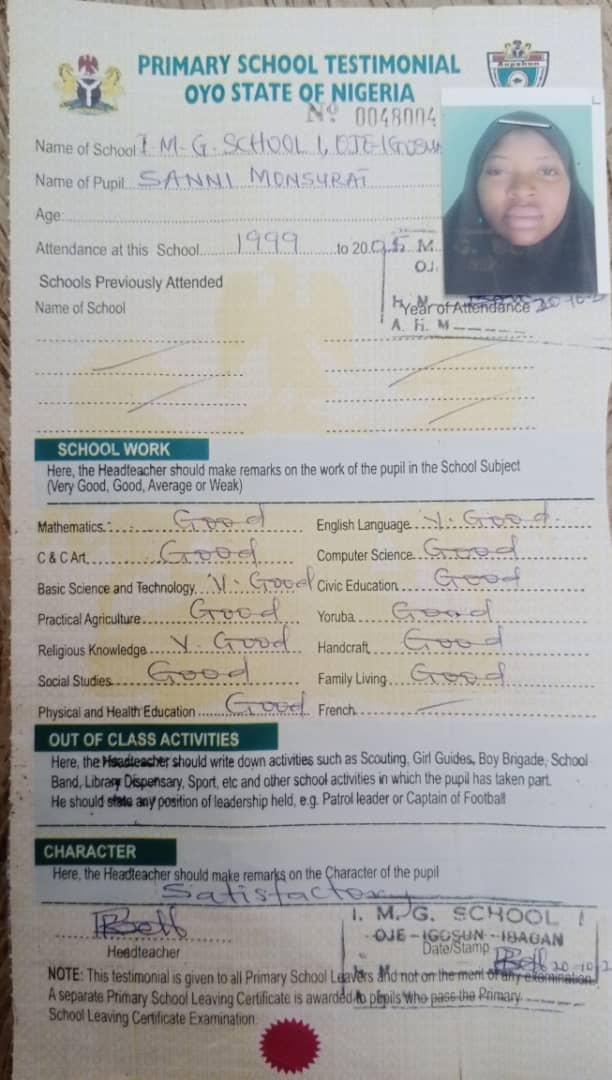 PRIMARY SCHOOL TESTIMONIAL
OYO STATE OF NIGERIA
Nº 0048004
Name of School I M.G. SCHOOL I, OJE-IGOSUN
Name of Pupil SANNI MONSURAT
Age:
Attendance at this School 1999 to 2005
Schools Previously Attended
Name of School Year of Attendance
A. H. M
SCHOOL WORK
Here, the Headteacher should make remarks on the work of the pupil in the School Subject
(Very Good, Good, Average or Weak)
Mathematics Good English Language V. Good
C & C Art Good Computer Science Good
Basic Science and Technology V. Good Civic Education Good
Practical Agriculture Good Yoruba Good
Religious Knowledge V. Good Handcraft Good
Social Studies Good Family Living Good
Physical and Health Education Good French
OUT OF CLASS ACTIVITIES
Here, the Headteacher should write down activities such as Scouting, Girl Guides, Boy Brigade, School
Band, Library Dispensary, Sport, etc and other school activities in which the pupil has taken part.
He should state any position of leadership held, e.g. Patrol leader or Captain of Football
CHARACTER
Here, the Headteacher should make remarks on the Character of the pupil
Satisfactory
I. M. G. SCHOOL I
OJE - IGOSUN - IBADAN
Headteacher Date/Stamp
NOTE: This testimonial is given to all Primary School Leavers and not on the merit of any examination.
A separate Primary School Leaving Certificate is awarded to pupils who pass the Primary
School Leaving Certificate Examination.